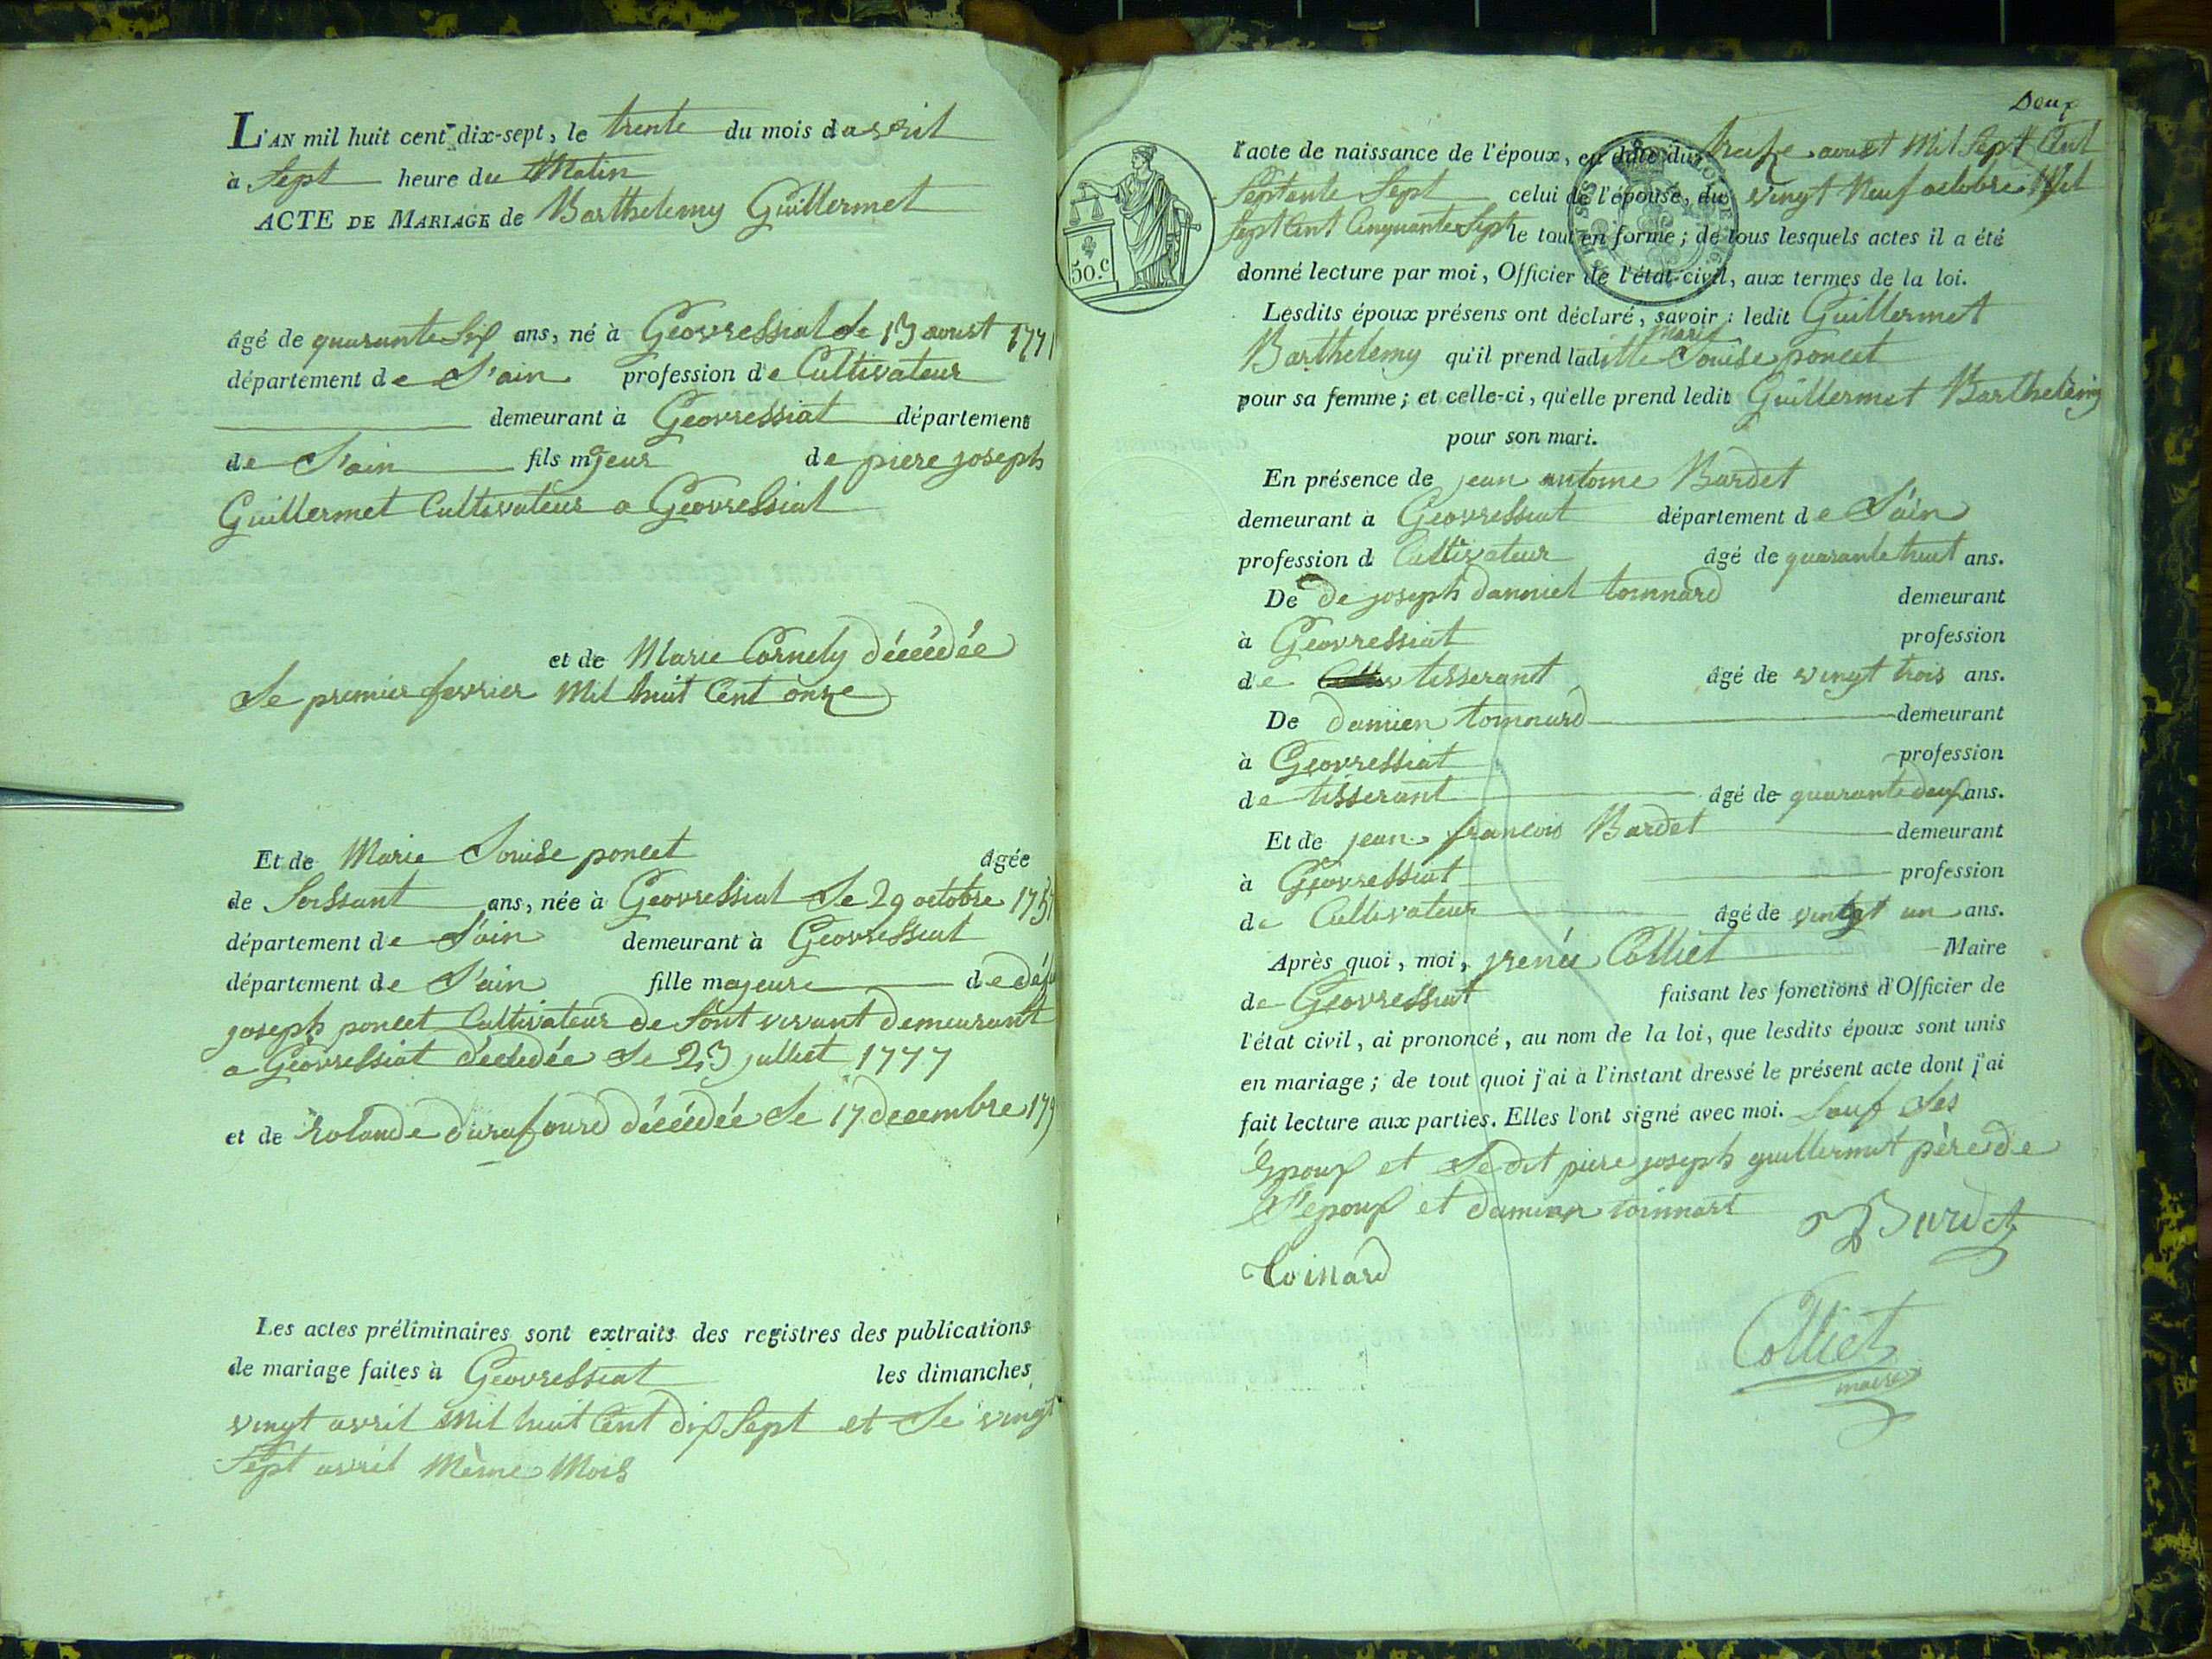 L'AN mil huit cent dix-sept, le trente du mois d avril
à Sept heure du Matin
ACTE DE MARIAGE de Barthelemy Guillermet
âgé de quarante Six ans, né à Geovressiat Le 13 aoust 1771
département de L'ain profession de Cultivateur
demeurant à Geovressiat département
de L'ain fils mjeur de piere joseph
Guillermet Cultivateur a Geovressiat
et de Marie Cornely décédée
Le premier fevrier Mil huit Cent onze
Et de Marie Louise poncet âgée
de Soissant ans, née à Geovressiat Le 29 octobre 1757
département de L'ain demeurant à Geovressiat
département de L'ain fille majeure de
joseph poncet Cultivateur de Sont vivant demeurant
a Geovressiat décédée Le 23 julliet 1777
et de rolande durafourd décédée Le 17 decembre
Les actes préliminaires sont extraits des registres des publications
de mariage faites à Geovressiat les dimanches
vingt avril Mil huit Cent dix Sept et Le vingt
Sept avril Mème Mois
Deux
l'acte de naissance de l'époux, en date du treize aoust Mil Sept Cent
Septante Sept celui de l'épouse, du vingt Neuf octobre Mil
Sept Cent Cinquante Sept le tout en forme; de tous lesquels actes il a été
50.c
donné lecture par moi, Officier de l'état civil, aux termes de la loi.
Lesdits époux présens ont déclaré, savoir : ledit Guillermet
Marie
Barthelemy qu'il prend laditte Louise poncet
pour sa femme; et celle-ci, qu'elle prend ledit Guillermet Barthelemy
pour son mari.
En présence de jean antoine Bardet
demeurant à Geovressiat département de L'ain
profession d Cultivateur âgé de quarante huit ans.
De de joseph danniel toinnard demeurant
à Geovressiat profession
de tisserant âgé de vingt trois ans.
De damien toinnard demeurant
à Geovressiat profession
de tisserant âgé de quarante deux ans.
Et de jean francois Bardet demeurant
à Geovressiat profession
de Cultivateur âgé de vingt un ans.
Après quoi, moi, jrenée Colliet Maire
de Geovressiat faisant les fonctions d'Officier de
l'état civil, ai prononcé, au nom de la loi, que lesdits époux sont unis
en mariage; de tout quoi j'ai à l'instant dressé le présent acte dont j'ai
fait lecture aux parties. Elles l'ont signé avec moi. Sauf Les
Epoux et Ledit piere joseph guillermet père de
L'epoux et damien toinnart Bardet
toinard
Colliet
maire